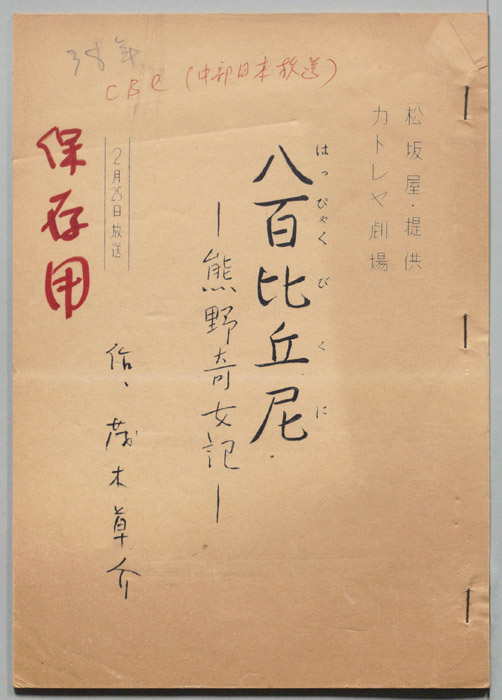 38年
CBC (中部日本放送)
松坂屋・提供
カトレヤ劇場
はっぴゃくびくに
八百比丘尼
―熊野奇女記―
2月25日放送
作、茂木草介
保存用